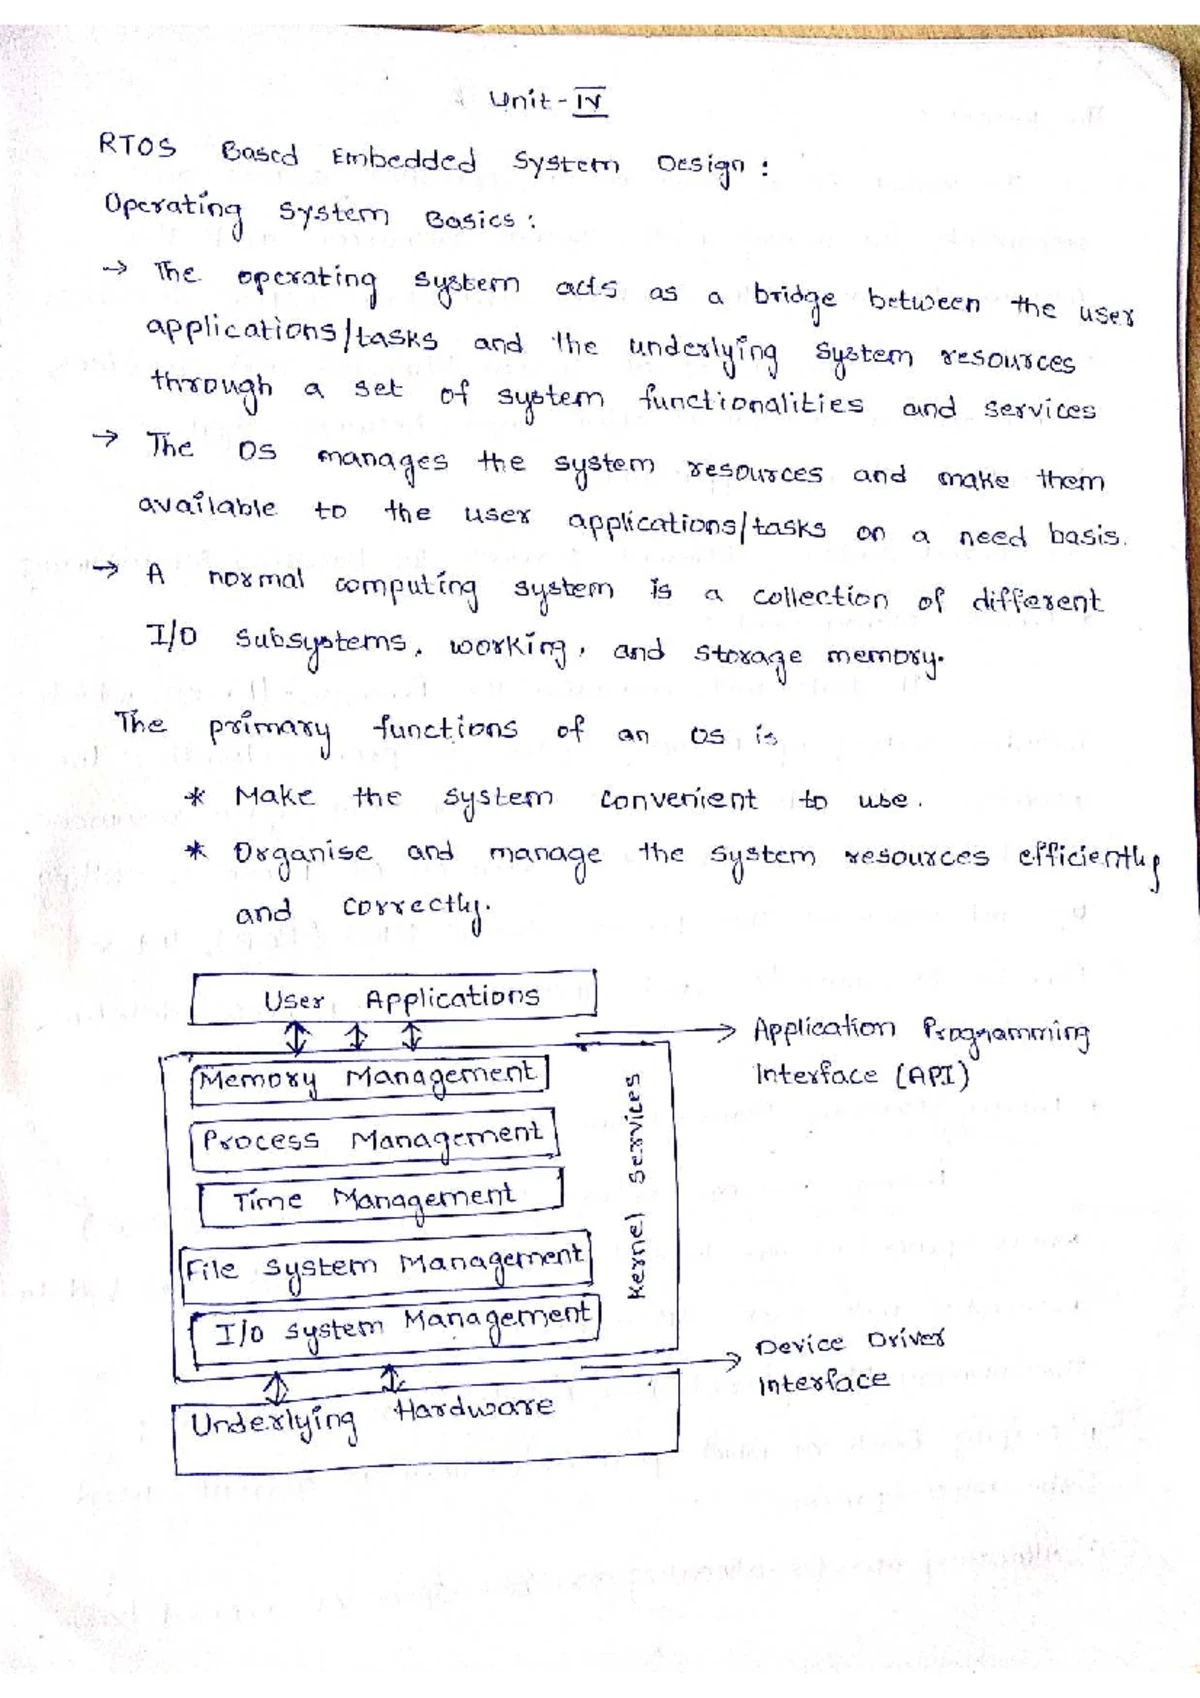 Unit-IV
RTOS Based Embedded System Design :
Operating System Basics :
→ The operating system acts as a bridge between the user
applications/tasks and the underlying system resources
through a set of system functionalities and services
→ The OS manages the system resources and make them
available to the user applications/tasks on a need basis.
→ A normal computing system is a collection of different
I/O subsystems, working, and storage memory.
The primary functions of an OS is
* Make the system convenient to use.
* Organise and manage the system resources efficiently
and correctly.
User Applications
Application Programming
Interface (API)
Memory Management
Process Management
Time Management
File System Management
I/O System Management
Kernel Services
Device Driver
Interface
Underlying Hardware